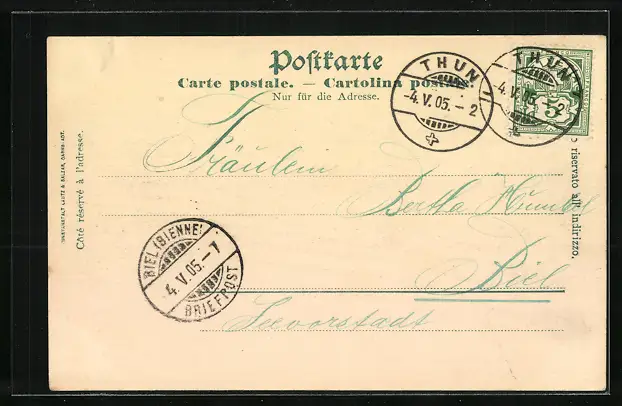 Postkarte
Carte postale. — Cartolina postale.
Nur für die Adresse.
THUN
-4.V.05.-2
THUN
-4.V.05.-2
5
Côté réservé à l'adresse.
riservato all' indirizzo.
Fräulein
Bertha
Biel
Seevorstadt
BIEL (BIENNE)
-4.V.05.-7
BRIEFPOST